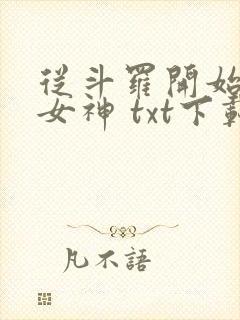 從斗羅開始
女神 txt下載
凡不語